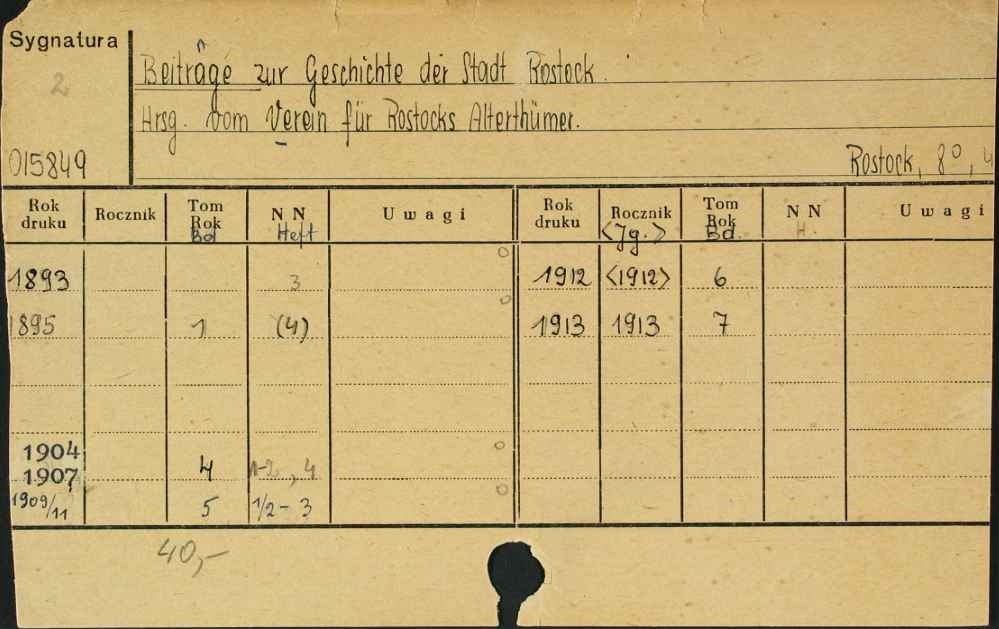 Sygnatura
2
Beiträge zur Geschichte der Stadt Rostock.
Hrsg. vom Verein für Rostocks Alterthümer.
015849
Rostock, 8°, 4
Rok druku Rocznik Tom Rok Bd NN Heft Uwagi Rok druku Rocznik <Jg.> Tom Rok Bd. NN H. Uwagi
1893 3 1912 <1912> 6
1895 1 (4) 1913 1913 7
1904
1907 4 1-2, 4
1909/11 5 1/2-3
40,-